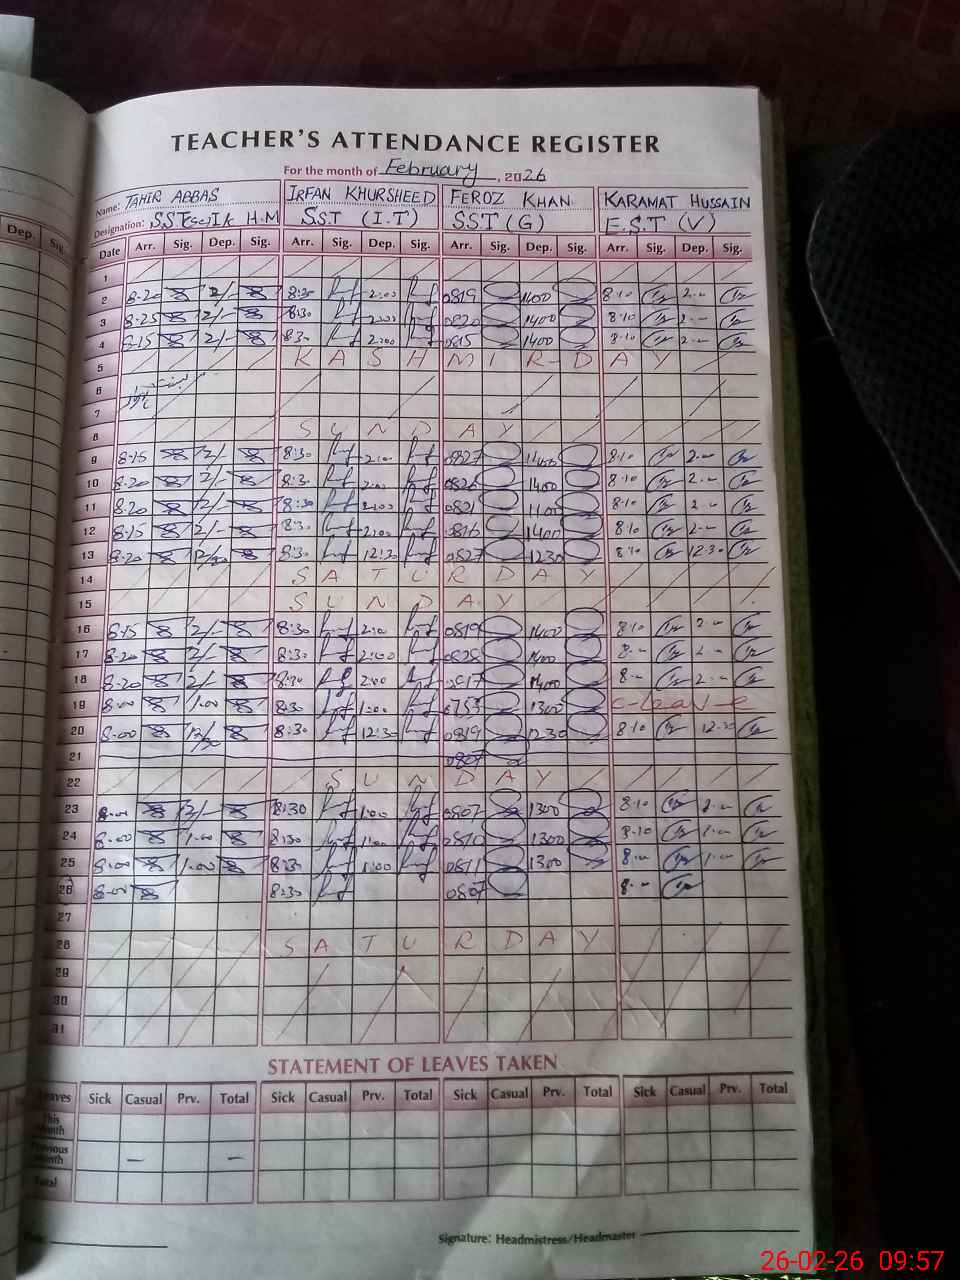 TEACHER'S ATTENDANCE REGISTER
For the month of February, 2026
Name: TAHIR ABBAS IRFAN KHURSHEED FEROZ KHAN KARAMAT HUSSAIN
Designation: H.M SST (I.T) SST (G) E.S.T (V)
Dep. Sig. Date Arr. Sig. Dep. Sig. Arr. Sig. Dep. Sig. Arr. Sig. Dep. Sig. Arr. Sig. Dep. Sig.
1
2 8-20 2/- 8:30 2:00 0819 1400 8-10 2-00
3 8-25 2/- 8:30 2:00 0820 1400 8-10 2-00
4 8-15 2/- 8:30 2:00 0815 1400 8-10 2-00
5 KASHMIR-DAY
6
7
8 SUNDAY
9 8-15 2/- 8:30 2:00 0827 1400 8-10 2-00
10 8-20 2/- 8:30 2:00 0826 1400 8-10 2-00
11 8-20 2/- 8:30 2:00 0821 1400 8-10 2-00
12 8-15 2/- 8:30 2:00 1400 8-10 2-00
13 8-20 12/30 8:30 12:30 0827 1230 8-10 12-30
14 SATURDAY
15 SUNDAY
16 8-15 2/- 8:30 2:00 0819 1400 8-10 2-00
17 8-20 2/- 8:30 2:00 0828 1400 8-00 2-00
18 8-20 2/- 8:30 2:00 1400 8-00 2-00
19 8-00 1-00 8:30 1:00 0753 1300 c-leave
20 8-00 12/30 8:30 12:30 0819 1230 8-10 12-30
21 0807
22 SUNDAY
23 8-00 2/- 8:30 1:00 0807 1300 8-10 2-00
24 8-00 1-00 8:30 1:00 0810 1300 8-10 1-00
25 8-00 1-00 8:30 1:00 0811 1300 8-00 1-00
26 8-00 8:30 0807 8-00
27
28 SATURDAY
29
30
31
STATEMENT OF LEAVES TAKEN
Leaves Sick Casual Prv. Total Sick Casual Prv. Total Sick Casual Prv. Total Sick Casual Prv. Total
This Month
Previous Month — —
Total
Signature: Headmistress/Headmaster
26-02-26 09:57